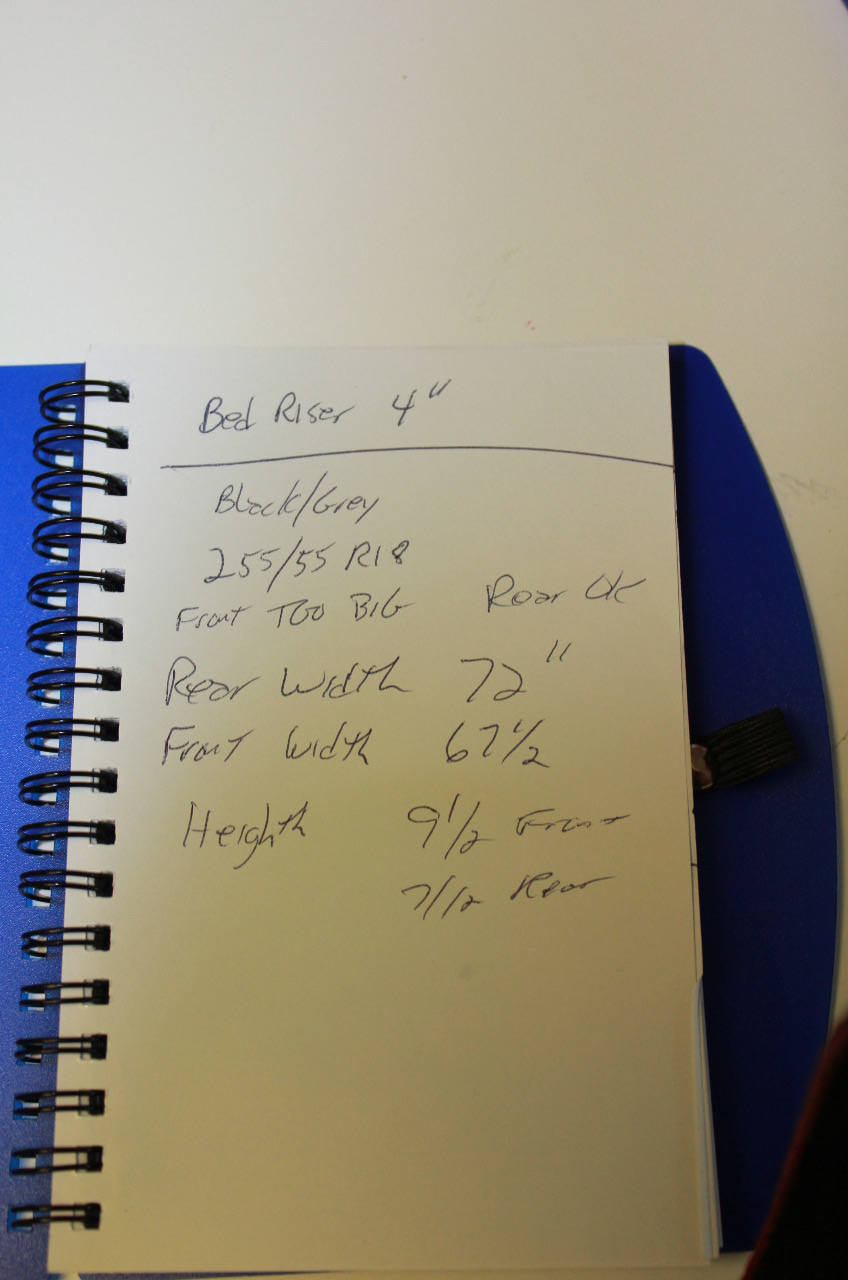 Bed Riser 4"
Black/Grey
255/55 R18
Front TOO BIG Rear OK
Rear Width 72"
Front Width 67 1/2
Heighth 9 1/2 Front
7 1/2 Rear